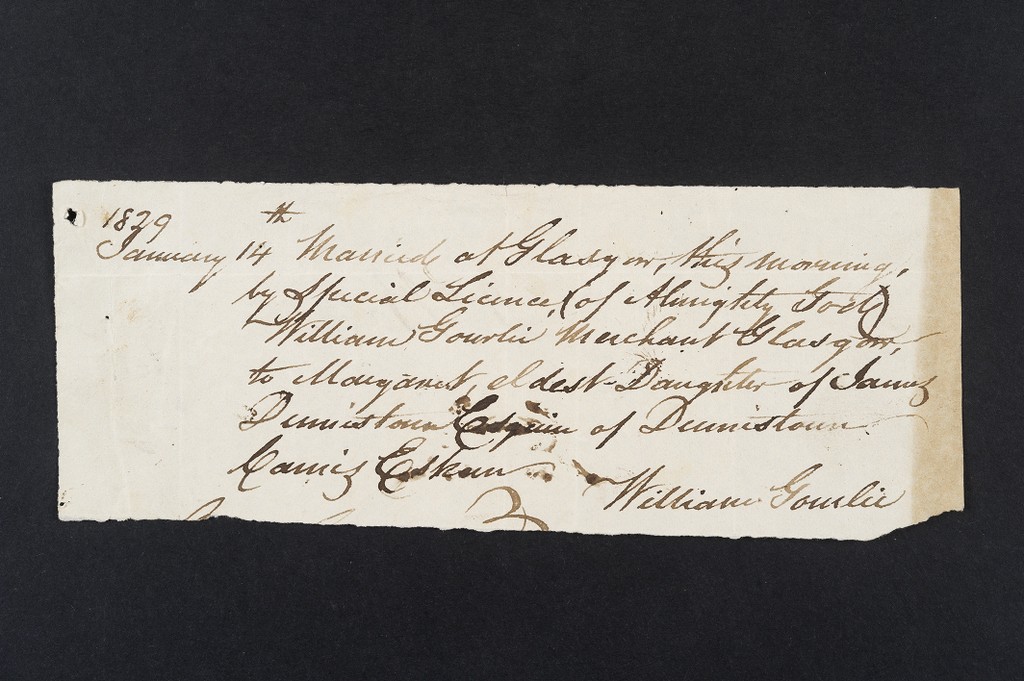 1829
January 14th Married at Glasgow, this morning,
by Special Licence, (of Almighty God)
William Gourlie Merchant Glasgow,
to Margaret, eldest Daughter of James
Dennistoun Esquire of Dennistoun.
William Gourlie